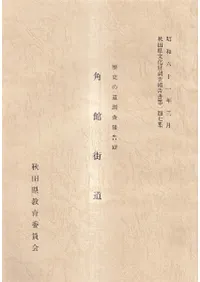 昭和六十一年三月
秋田県文化財調査報告書
歴史の道調査報告
角館街道
秋田県教育委員会